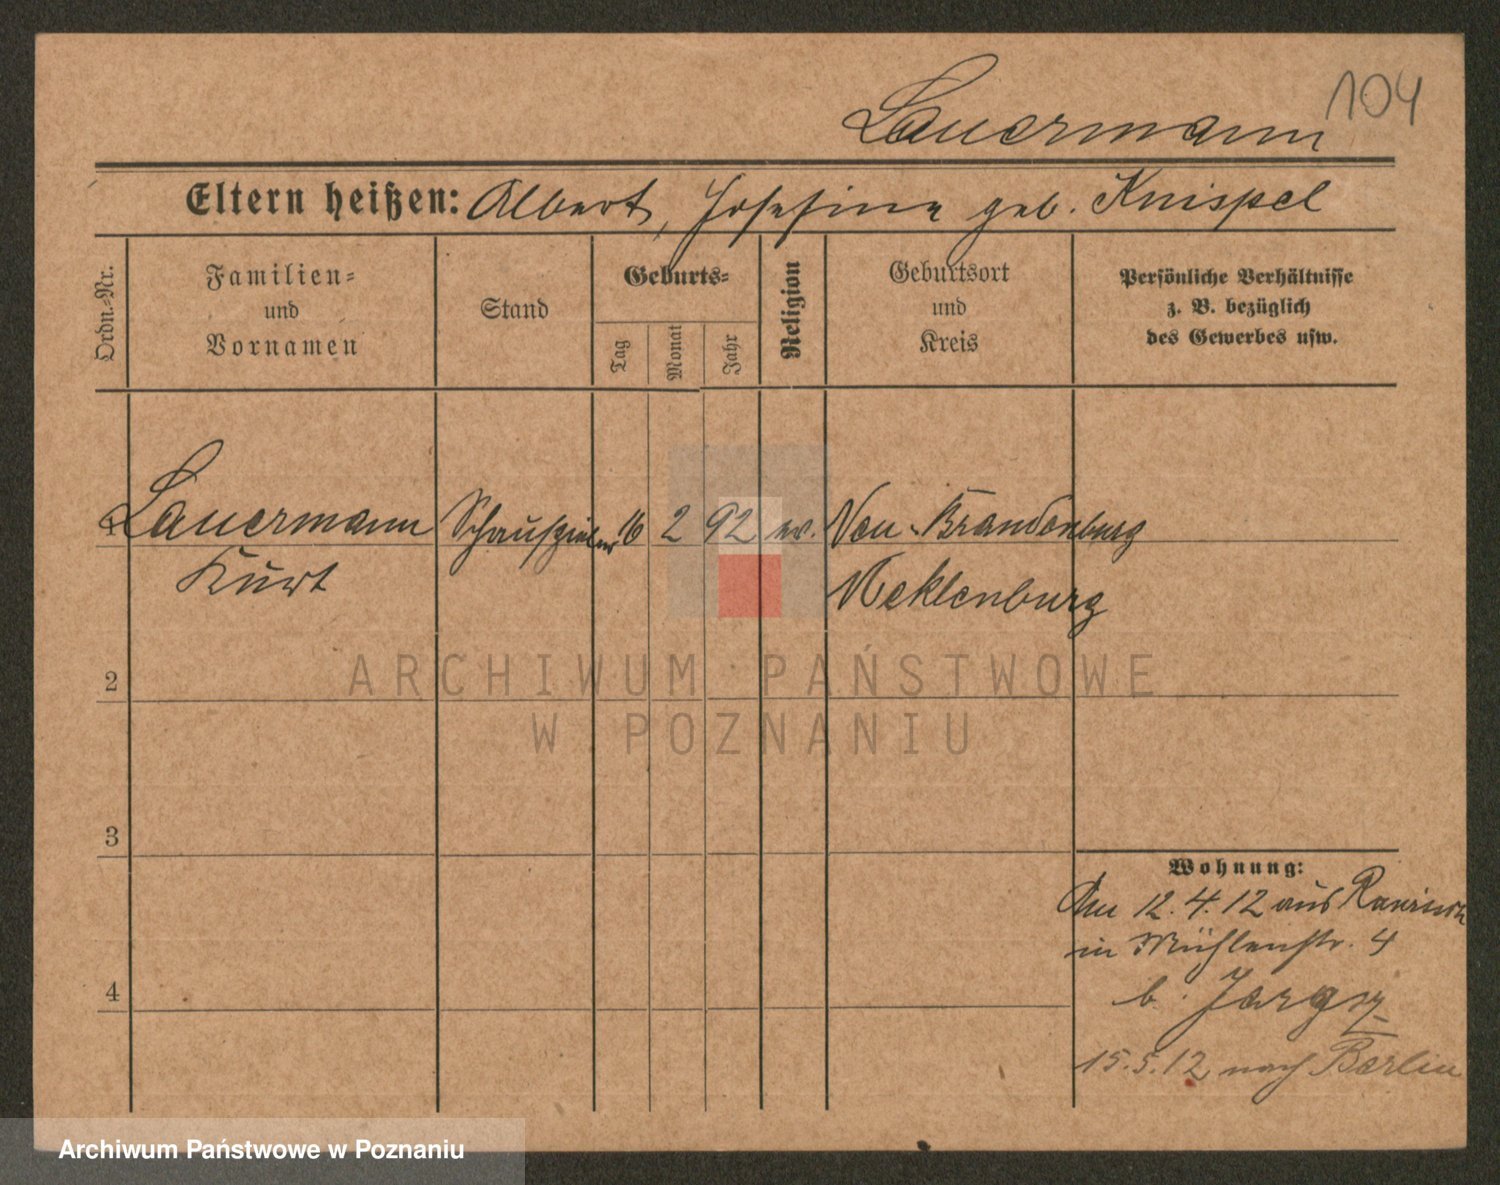 104
Lauermann
Eltern heißen: Albert, Josefine geb. Knispel
Ordn.-Nr.
Familien-
und
Vornamen
Stand
Geburts-
Tag
Monat
Jahr
Religion
Geburtsort
und
Kreis
Persönliche Verhältnisse
z. B. bezüglich
des Gewerbes usw.
1 Lauermann Schauspieler 16 2 92 ev. Neu-Brandenburg
Kurt Meklenburg
2
3
4
Wohnung:
Am 12.4.12 aus
in Mühlenstr. 4
b.
15.5.12 nach Berlin
ARCHIWUM PAŃSTWOWE
W POZNANIU
Archiwum Państwowe w Poznaniu